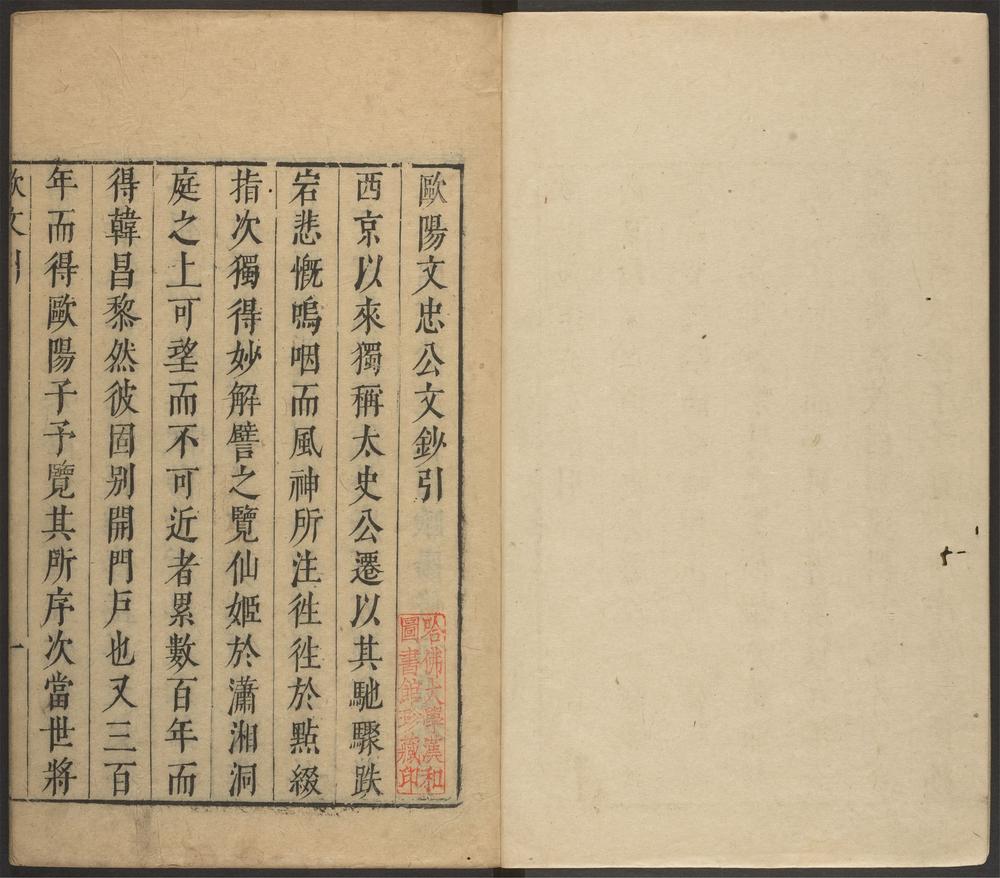 歐陽文忠公文鈔引
西京以來獨稱太史公遷以其馳驟跌
宕悲慨嗚咽而風神所注徃徃於點綴
指次獨得妙解譬之覽仙姬於瀟湘洞
庭之上可望而不可近者累數百年而
得韓昌黎然彼固别開門戶也又三百
年而得歐陽子予覽其所序次當世將
歐文引
一
哈佛大學漢和
圖書館珍藏印